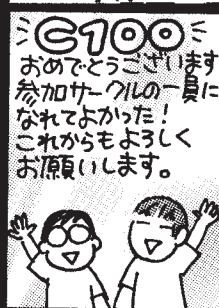 C100
おめでとうございます
参加サークルの一員に
なれてよかった!
これからもよろしく
お願いします。